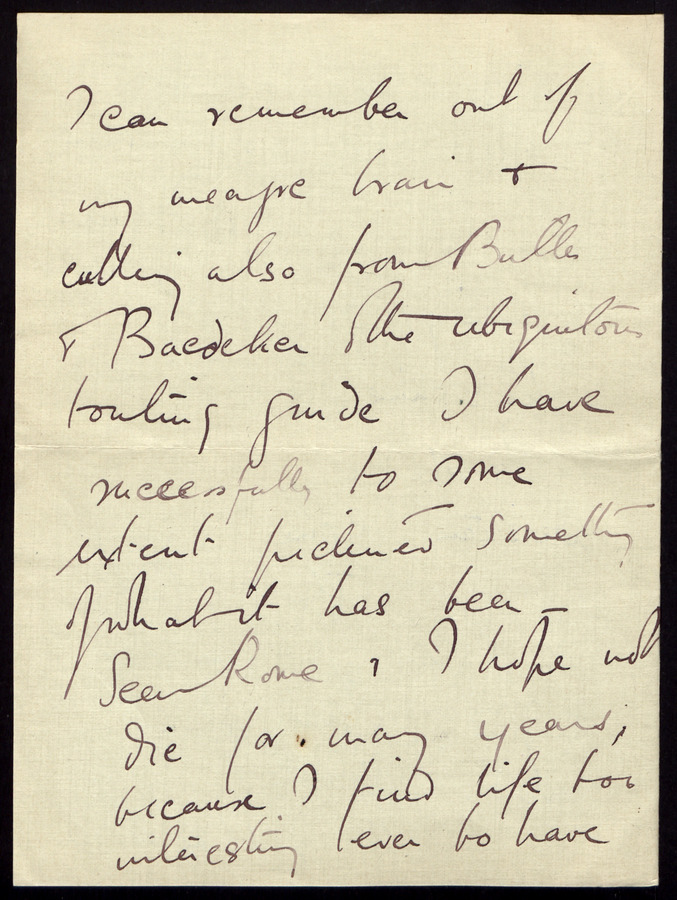 I can remember out of
my meagre brain +
culling also from Butler
+ Baedeker & the ubiquitous
touting guide I have
successfully to some
extent pictured something
of what it has been –
Seen Rome , I hope not
die for many years,
because I find life too
interesting ever to have